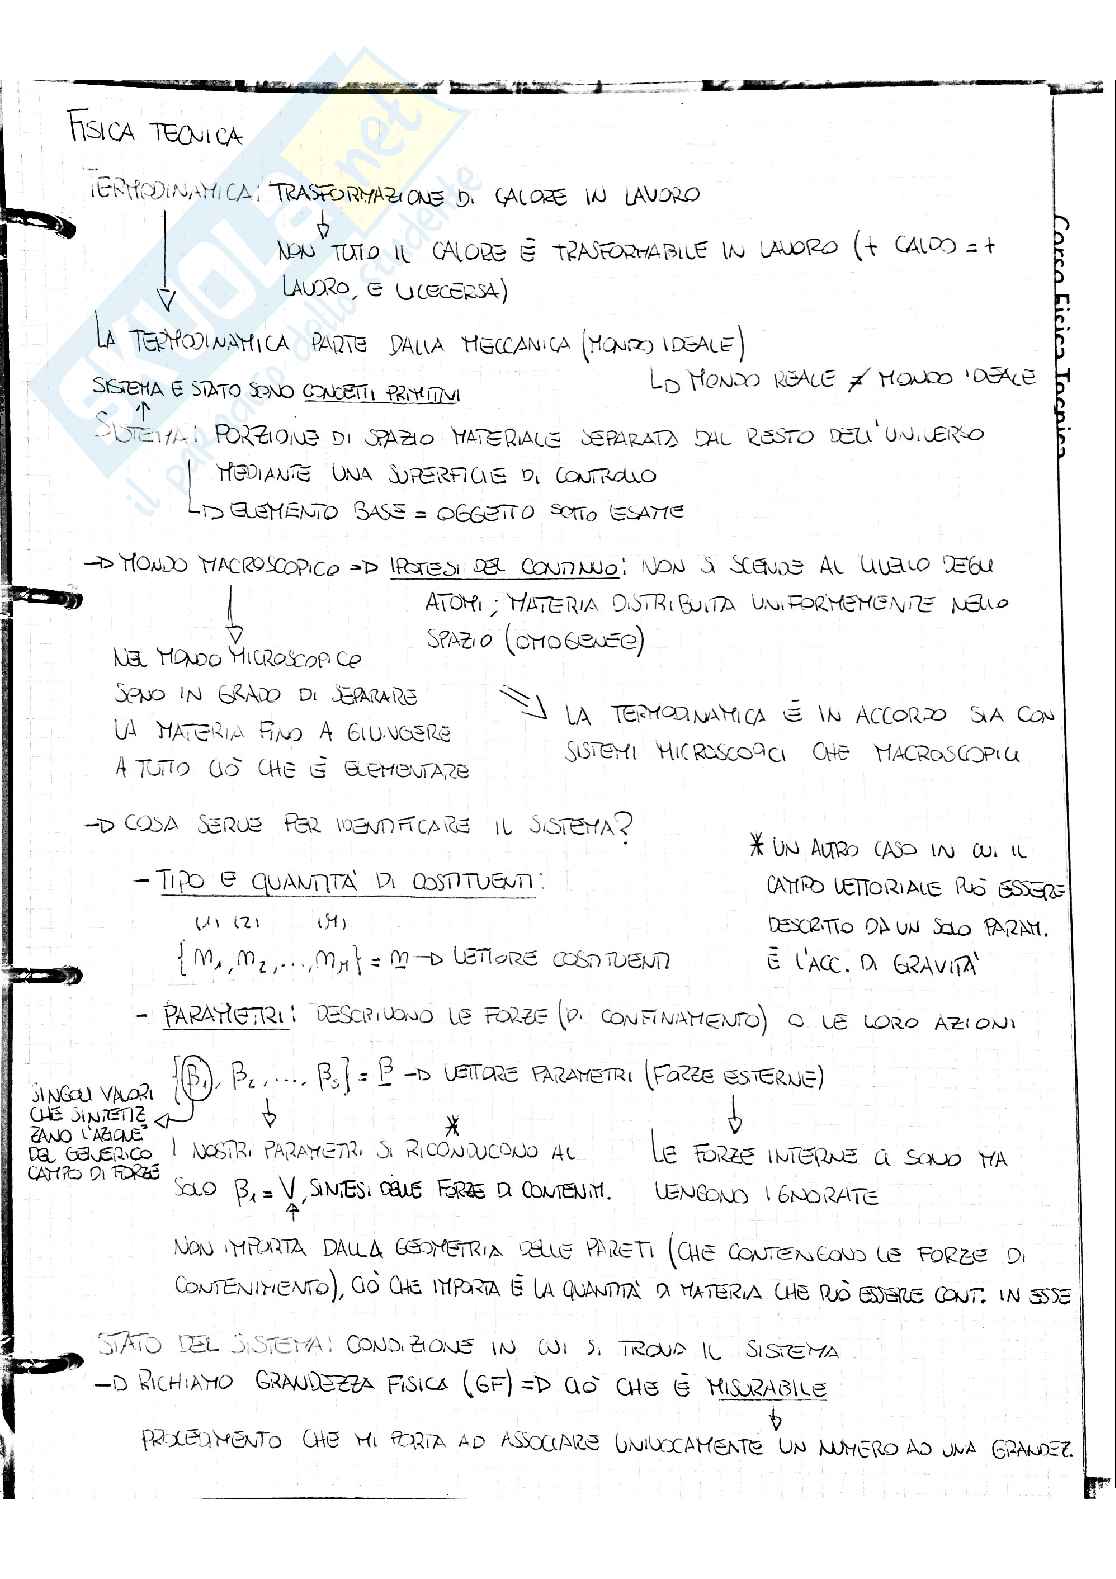 FISICA TECNICA
TERMODINAMICA: TRASFORMAZIONE DI CALORE IN LAVORO
NON TUTO IL CALORE È TRASFORMABILE IN LAVORO (+ CALDO = +
LAVORO, E VICECERSA)
LA TERMODINAMICA PARTE DALLA MECCANICA (MONDO IDEALE)
↳ MONDO REALE ≠ MONDO IDEALE
SISTEMA E STATO SONO CONCETTI PRIMITIVI
SISTEMA: PORZIONE DI SPAZIO MATERIALE SEPARATA DAL RESTO DELL'UNIVERSO
MEDIANTE UNA SUPERFICIE DI CONTROLLO
↳ ELEMENTO BASE = OGGETTO SOTTO ESAME
→ MONDO MACROSCOPICO ⇒ IPOTESI DEL CONTINUO: NON SI SCENDE AL LIVELLO DEGLI
ATOMI; MATERIA DISTRIBUITA UNIFORMEMENTE NELLO
SPAZIO (OMOGENEO)
NEL MONDO MICROSCOPICO
SONO IN GRADO DI SEPARARE
LA MATERIA FINO A GIUNGERE
A TUTTO CIÒ CHE È ELEMENTARE
LA TERMODINAMICA È IN ACCORDO SIA CON
SISTEMI MICROSCOPICI CHE MACROSCOPICI
→ COSA SERVE PER IDENTIFICARE IL SISTEMA?
- TIPO E QUANTITÀ DI COSTITUENTI:
(1) (2) (M)
{m₁, m₂, ..., m_M} = m → VETTORE COSTITUENTI
* UN ALTRO CASO IN CUI IL
CAMPO VETTORIALE PUÒ ESSERE
DESCRITTO DA UN SOLO PARAM.
È L'ACC. DI GRAVITÀ
- PARAMETRI: DESCRIVONO LE FORZE (DI CONFINAMENTO) O LE LORO AZIONI
{β₁, β₂, ..., βₛ} = β → VETTORE PARAMETRI (FORZE ESTERNE)
SINGOLI VALORI
CHE SINTETIZ
ZANO L'AZIONE
DEL GENERICO
CAMPO DI FORZE
*
I NOSTRI PARAMETRI SI RICONDUCONO AL
SOLO β₁ = V, SINTESI DELLE FORZE DI CONTENIM.
LE FORZE INTERNE CI SONO MA
VENGONO IGNORATE
NON IMPORTA DALLA GEOMETRIA DELLE PARETI (CHE CONTENGONO LE FORZE DI
CONTENIMENTO), CIÒ CHE IMPORTA È LA QUANTITÀ DI MATERIA CHE PUÒ ESSERE CONT. IN ESSE
STATO DEL SISTEMA: CONDIZIONE IN CUI SI TROVA IL SISTEMA
→ RICHIAMO GRANDEZZA FISICA (GF) ⇒ CIÒ CHE È MISURABILE
PROCEDIMENTO CHE MI PORTA AD ASSOCIARE UNIVOCAMENTE UN NUMERO AD UNA GRANDEZ.
Corso Fisica Tecnica
SKUOLA.net
il paradiso dello studente